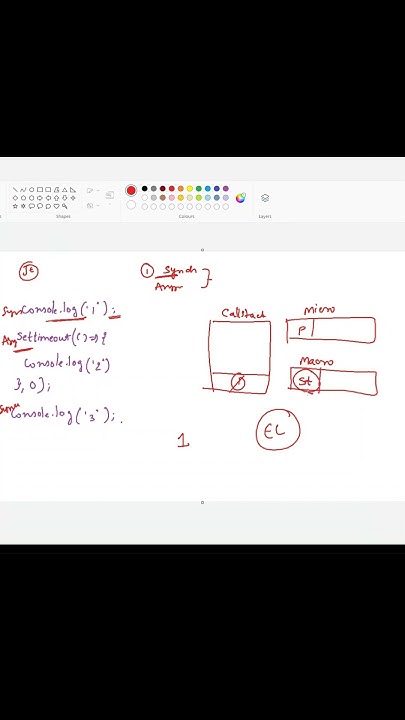 Shapes
Colours
Layers
JE
1 Synch
Async
Sync Console.log('1');
Asy Settimeout(() => {
Console.log('2')
}, 0);
Console.log('3');
Callstack
1
Micro
P
Macro
St
EL
1